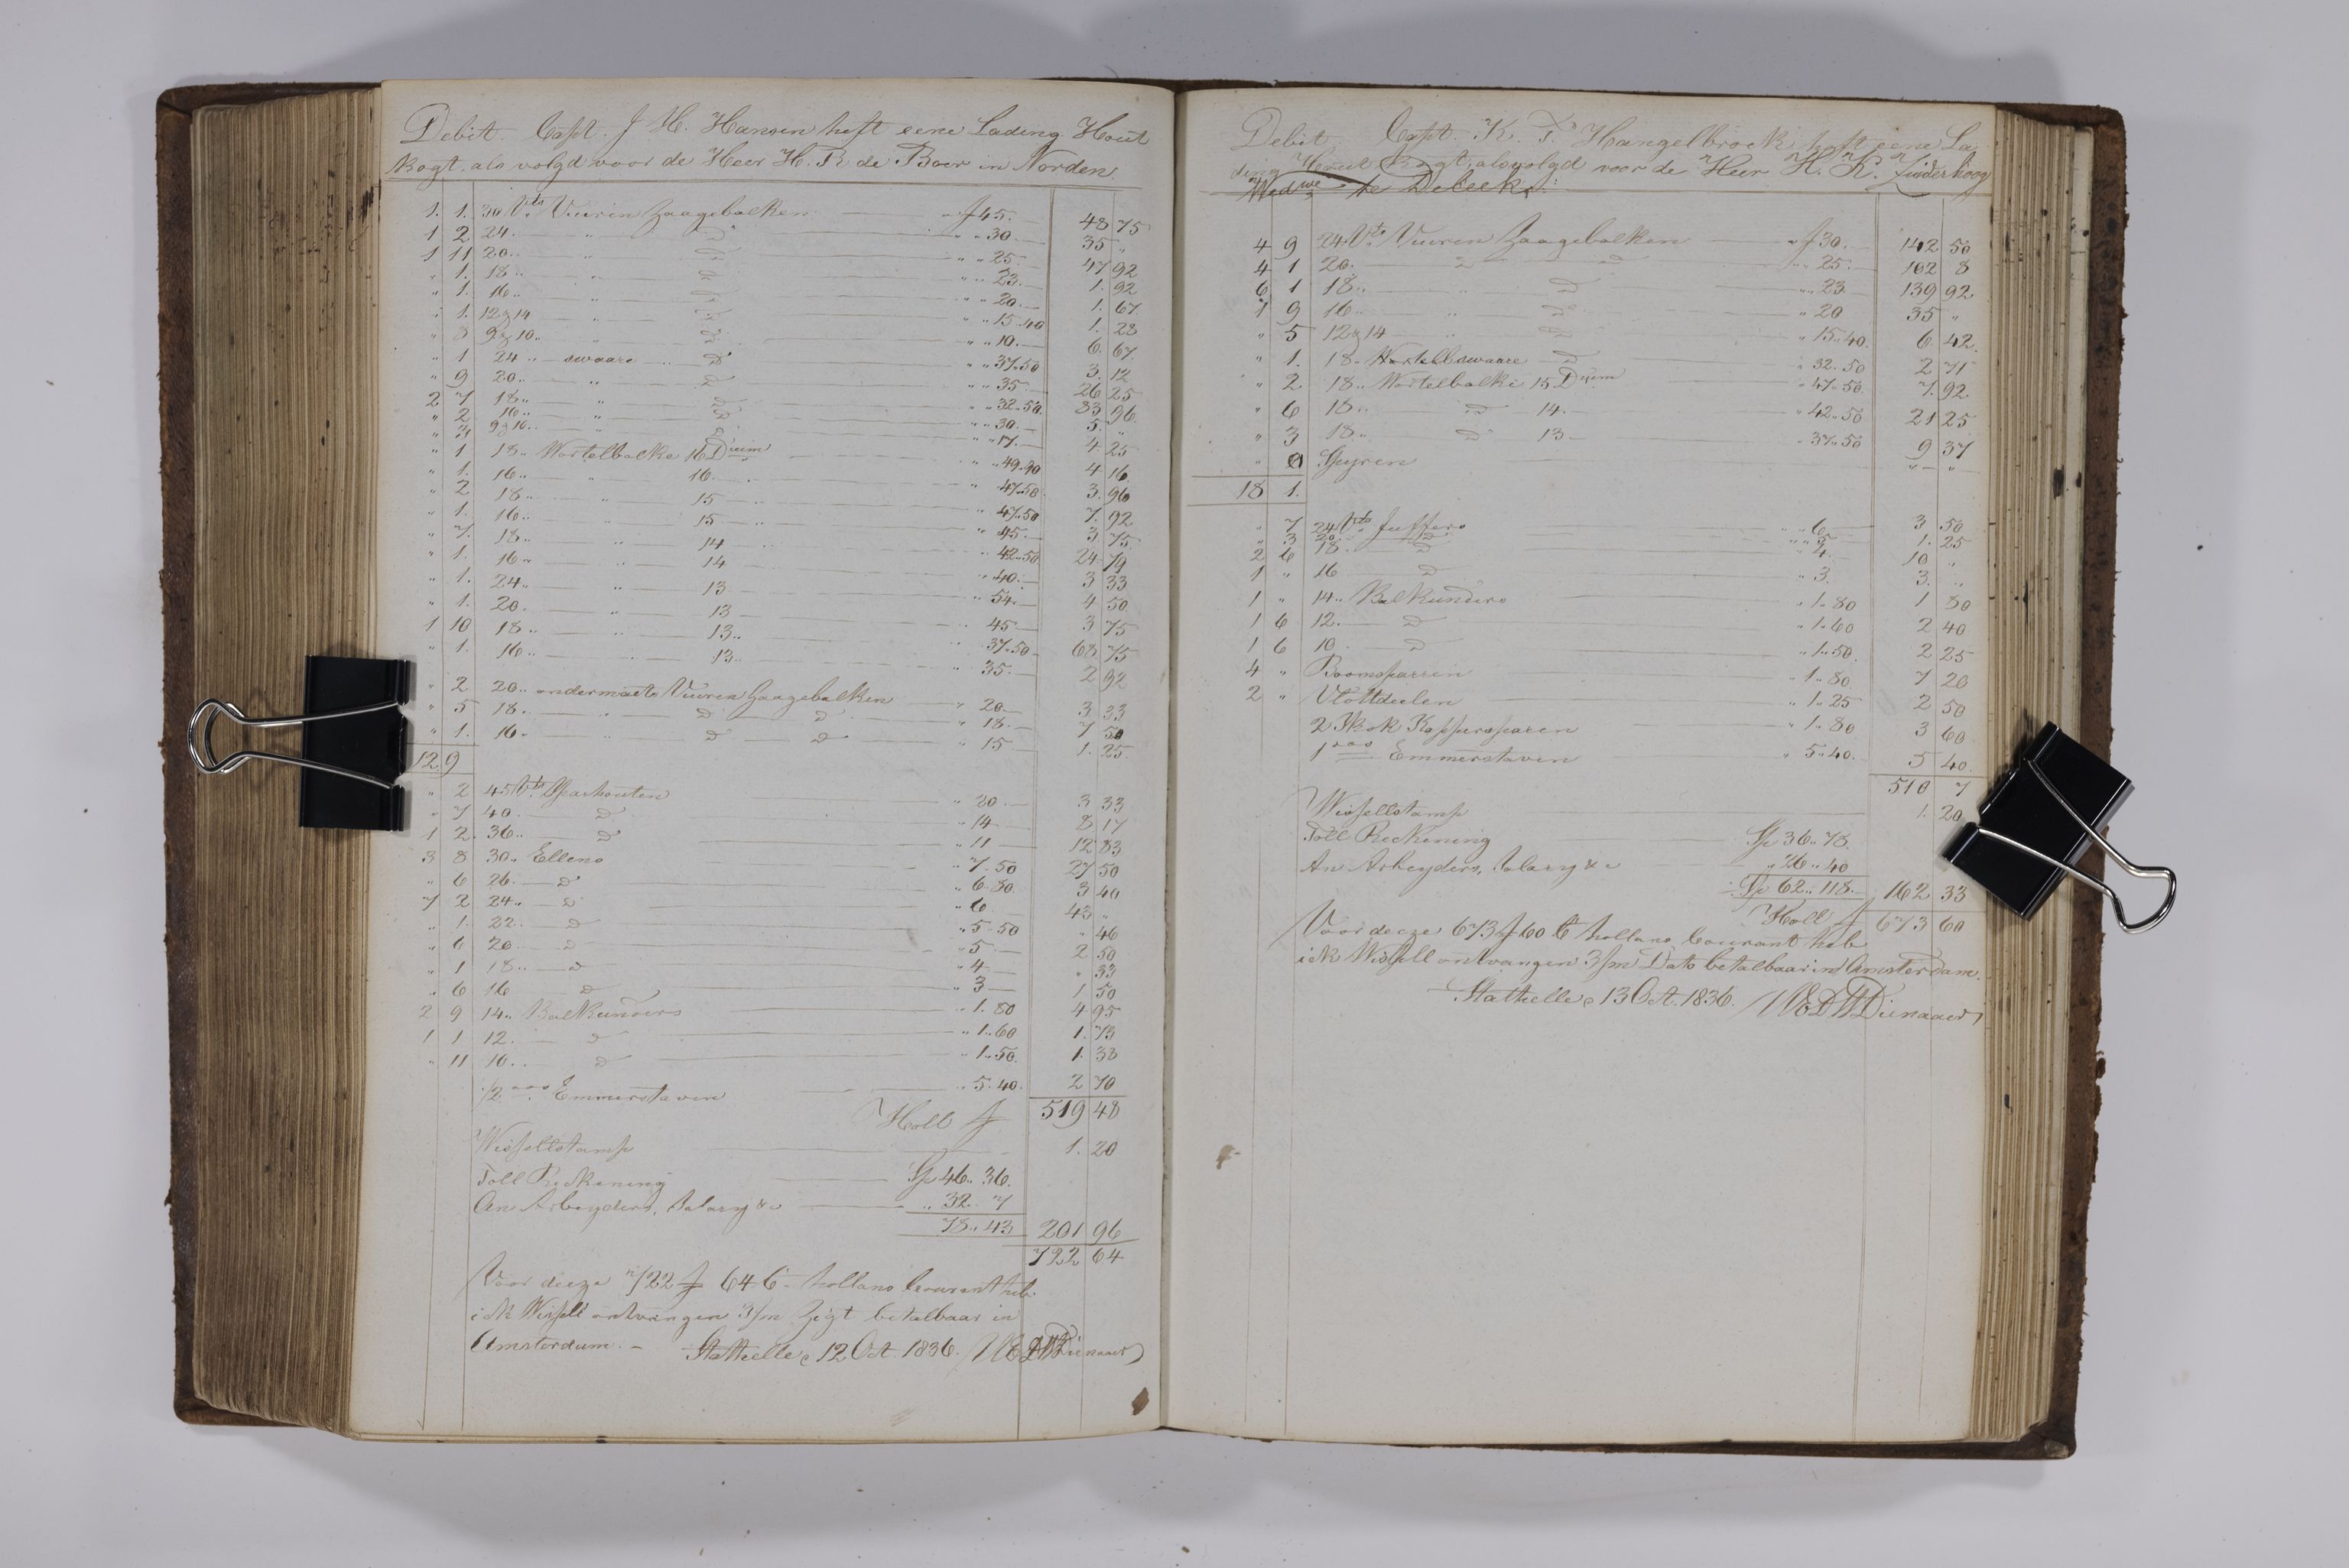 Debit. Capt. J H. Hansen heft eene Lading Hout
Kogt als volgd voor de Heer H. R. de Boer in Norden
1. 1. 30 Vts Vuuren Zaagebalken — „ ƒ 45. — 48 75
1 2 24. „ D „ „ 30. — 35 „
1 11 20.. „ D „ „ 25. — 47 92
„ 1. 18 .. „ D „ „ 23. — 1. 92
„ 1. 16.. „ D „ „ 20. — 1. 67.
„ 1. 12 & 14 „ D „ „ 15.40 1. 28
„ 8 9 & 10.. „ D „ „ 10. — 6. 67.
„ 1 24 .. — swaare .. D „ „ 37.50 3. 12
„ 9 20.. — „ D „ „ 35. — 26 25
2 7 18.. — „ D „ „ 32..50. 83 96.
„ 2 16.. — „ D „ „ 30. — 5. „
„ 3 9 & 10.. „ D „ „ 17. — 4. 25
„ 1 18.. Wortelbalke 16 Duum „ „ 49.90 4 16
„ 1. 16.. „ 16. „ 47.50 3. 96
„ 2 18.. „ 15 — „ „ 47.50 7. 92
„ 1. 16.. „ 15 — „ „ 45. — 3 75
„ 7. 18.. „ 14 „ 42..50 24 79
„ 1. 16.. „ 14 — „ 40. — 3 33
„ 1. 24.. „ 13 — „ 54. — 4 50
„ 1. 20. „ 13 — „ 45 — 3 75
1 10 18.. — „ 13.. „ 37..50 68 75
„ 1. 16.. „ 13.. „ 35. — 2 92
„ 2 20.. ondermaets Vuuren Zaagebalken „ 20. — 3 33
„ 5 18. „ D D „ 18. — 7 50
„ 1. 16. „ D D „ 15 1. 25
12. 9
„ 2 45 Vts Sparhouten „ 20. — 3 33
„ 7 40. D „ 14. — 8 17
1 2. 36.. D „ 11 — 12 83
3 8 30.. Ellens „ 7.50 27 50
„ 6 26. — D „ 6.80. 3 40
7 2 24. — D „ 6 — 43 „
„ 1. 22. — D „ 5.50 „ 46
„ 6 20. — D „ 5. — 2 50
„ 1 18.. — D „ 4. — „ 33
„ 6 16 D „ 3 — 1 50
2 9 14.. Balkunders „ 1.80 4 95
1 1 12. D „ 1..60 1. 73
„ 11 10.. D „ 1..50. 1. 38
1/2 ooo Emmerstaven „ 5.40. 2 70
Holl ƒ 519 48
Wissellstamp 1. 20
Toll Reckening Sp 46.. 36.
An Arbeyders, Salary &c „ 32.. 7
78.. 43 201 96
722 64
Voor deeze 722 ƒ 64 C. hollans Courant heb
ick Wissell ontvangen 3/m Zigt betalbaar in
Amsterdam. — Stathelle, 12 Oct. 1836.
Debit Capt. K. T. Hangelbroek heft eene La
ding Hout Kogt, alsvolgd voor de Heer H. K. Zuiderhoog
Wedwe te
4 9 24. Vts Vuuren Zaagebalken — „ ƒ 30. — 142 50
4 1 20. „ D „ „ 25. — 102 8
6 1 18.. „ D „ „ 23. 139 92.
1 9 16.. „ D „ 20 35 „
„ 5 12 & 14 „ D „ 15..40. 6. 42.
„ 1. 18.. Wortellswaare D „ 32.50 2 71
„ 2. 18.. Wortelbalke 15 Duum „ 47.50. 7. 92.
„ 6 18.. D 14. — „ 42..50 21 25
„ 3 18.. D 13. — „ 37..50 9 37
„ 0 Spyren „ — „
18 1.
„ 7 24 Vts Juffers „ „ 6. 3 50
„ 3 20 D „ „ 5. 1. 25
2 6 18. D „ 4. 10 „
1 „ 16 D „ 3. 3. „
1 „ 14.. Balkunders „ 1..80 1 80
1 6 12. D „ 1..60 2 40
1 6 10. D „ 1..50. 2 25
4 „ Boomsparren „ 1..80 7 20
2 „ Vlottdeelen „ 1..25 2 50
2 Skok Kappersparen „ 1..80 3 60
1 ooo Emmerstaven „ 5..40. 5 40.
510 7
Wissellstamp 1. 20
Toll Reckening Sp 36.. 78.
An Arbeyders, Salary &c „ 26.. 40
Sp 62.. 118. 162 33
Holl ƒ 673 60
Voor deeze 673 ƒ 60 C hollans Courant heb
ick Wissell ontvangen 3/m Dato betalbaar in Amsterdam.
Stathelle, 13 Oct. 1836.